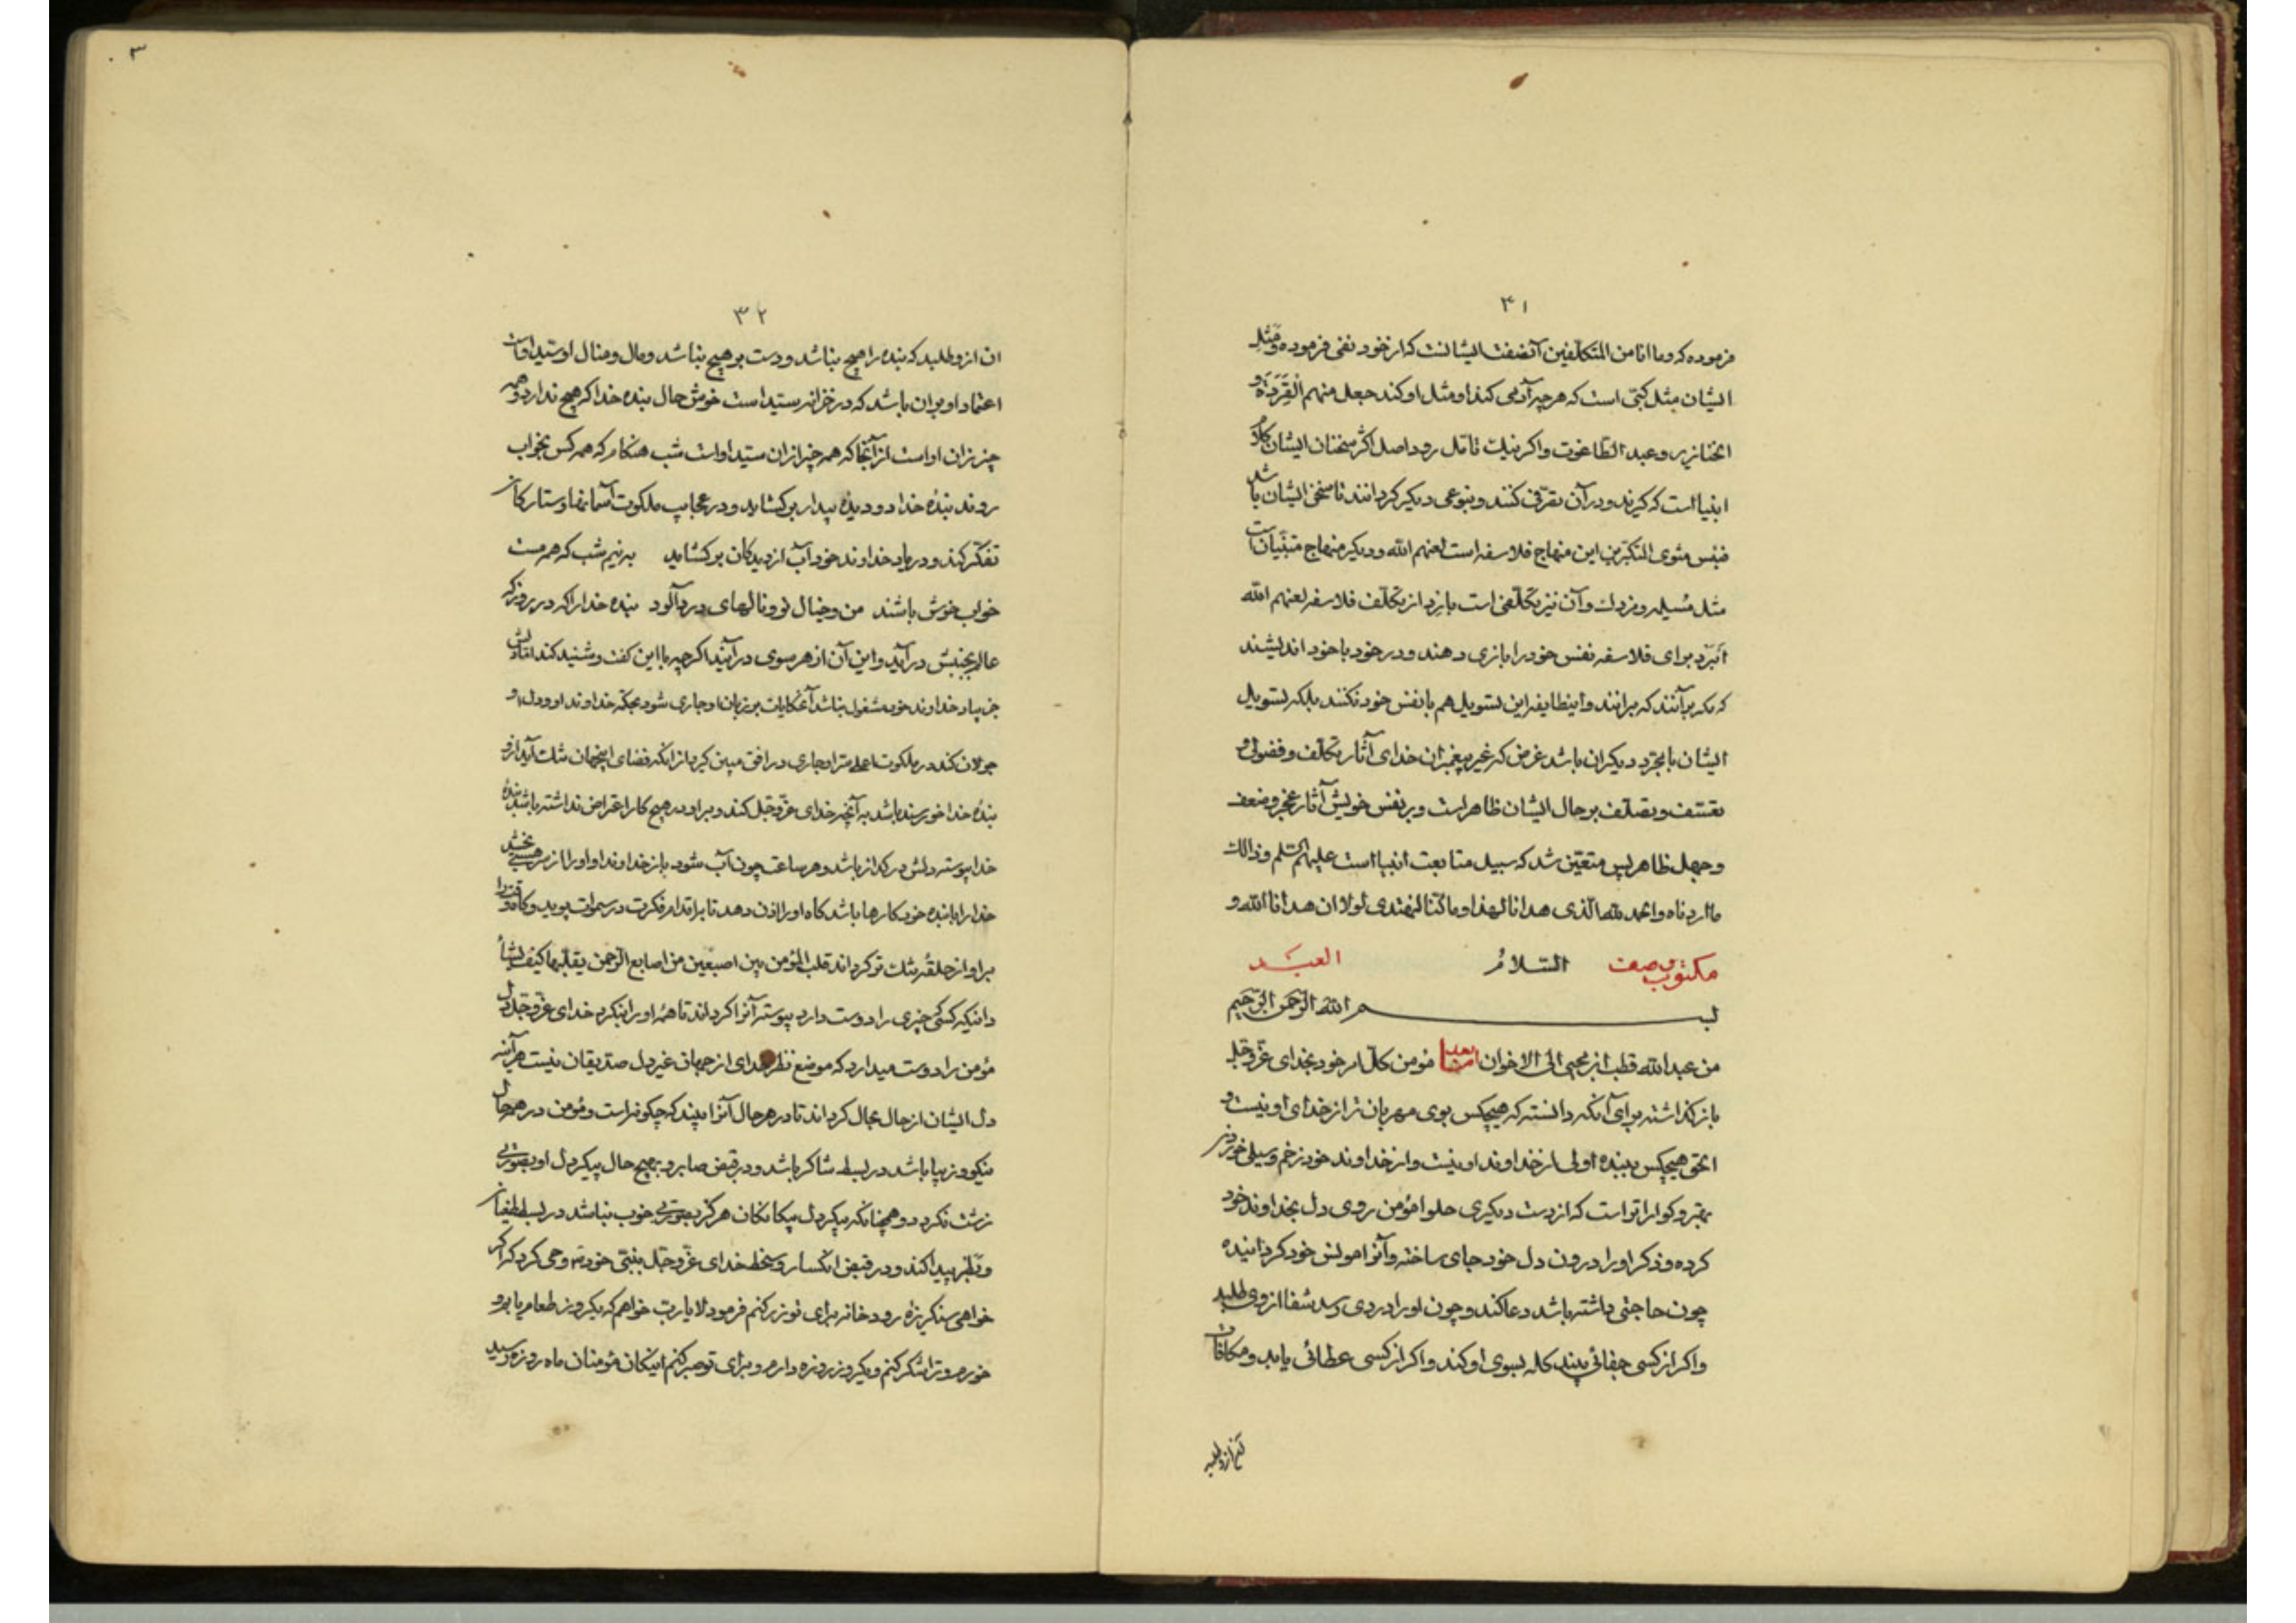 ۳۱
فرموده که وما انا من المتکلّفین آنصفت ایشانست که از خود نفی فرموده و مثل
ایشان مثل کبّی است که هر چه آدمی کند او مثل او کند جعل منهم القردة و
الخنازیر وعبد الطّاغوت واکر نیک تامّل رود اصل اکثر سخنان ایشان کلام
انبیا است که کیرند و در آن تصرّفی کنند و بنوعی دیکر کردانند تا سخن ایشان باشد
فبئس مثوی المتکبّرین این منهاج فلاسفه است لعنهم الله و دیکر منهاج متنبّیان است
مثل مُسیلمه و مزدک و آن نیز تکلّفی است باردتر از تکلّف فلاسفه لعنهم الله
برای فلاسفه نفس خود را بازی دهند و در خود با خود اندیشند
که بر آنند که برانند و اینطایفه این تسویل هم با نفس خود نکنند بلکه تسویل
ایشان با دیکران باشد غرض که غیر پیغمبران خدای آثار تکلّف و فضولی و
تعسّف و تصلّف بر حال ایشان ظاهر است و بر نفس خویش آثار عجز و ضعف
و جهل ظاهر پس متعیّن شد که سبیل متابعت انبیا است علیهم السّلم وذالک
ما اردناه والحمد لله الّذی هدانا لهذا وما کنّا لنهتدی لولا ان هدانا الله و
السّلام
مکتوب وصف العبد
بسم الله الرّحمن الرّحیم
من عبد الله قطب ابن محیی الی الاخوان امّا بعد مؤمن کلّ امر خود بخدای عزّ و جلّ
باز کذاشته برای آنکه دانسته که هیچکس بوی مهربان تر از خدای او نیست و
الحق هیچکس ببنده اولی از خداوند او نیست و از خداوند خود زخم و سیلی خوردن
بهتر و کوارا تر است که از دست دیکری حلوا مؤمن روی دل بخداوند خود
کرده و ذکر او را درون دل خود جای ساخته و آنرا مونس خود کردانیده
چون حاجتی داشته باشد دعا کند و چون او را دردی رسد شفا از وی طلبد
واکر از کسی جفائی بیند کله بسوی او کند واکر از کسی عطائی یابد و مکافات
آن از او طلبد
۳۲
ان از و طلبد که بنده را هیچ نباشد و دست بر هیچ نباشد و مال و منال او سیّد اوست
اعتماد او بران باشد که در خزانه سیّد است خوش حال بنده خدا که هیچ ندارد و همه
چیز زان او است از آنجا که همه چیز از ان سیّد او است شب هنکام که همه کس بخواب
روند بندهٔ خدا دو دیدهٔ بیدار بر کشاید و در عجایب ملکوت آسمانها و ستارکان
تفکّر کند و در یاد خداوند خود آب از دیدکان بر کشاید به نیم شب که همه مست
خواب خوش باشند من و خیال تو و نالهای درد آلود بنده خدا را که در روز که
عالم بجنبش در آید و این آن از هر سوی در آیند اکرچه با این کفت و شنید کند امّا دلش
جز بیاد خداوند خود مشغول نباشد آنحکایات بر زبان او جاری شود بحکم خداوند او و دل او
جولان کند در ملکوت اعلی در افق مبین کیرد از انکه فضای اینجهان تنک آید از و
بندهٔ خدا خورسند باشد به آنچه خدای عزّ و جلّ کند و بر او در هیچ کار اعتراض نداشته باشد بندهٔ
خدا پیوسته دلش در کداز باشد و هر ساعت چون آب شود باز خداوند او او را از سر هستی بخشد
خدا را با بنده خود کارها باشد کاه او را اذن دهد تا باقدام فکرت در سموات پوید و کاه
بر او از حلقه تنک تر کرداند قلب المؤمن بین اصبعین من اصابع الرّحمن یقلّبها کیف یشاء
دانیکه کسی چیزی را دوست دارد پیوسته آنرا کرداند تا همهٔ او را بنکرد خدای عزّ و جلّ دل
مؤمن را دوست میدارد که موضع نظر خدای از جهان غیر دل صدّیقان نیست هر آینه
دل ایشان از حال بحال کرداند تا در هر حال آنرا ببیند که چکونه است و مؤمن در همه حال
نیکو و زیبا باشد در بسط شاکر باشد و در قبض صابر و بهیچ حال پیکر دل او بصورتی
زشت نکردد و همچنانکه پیکر دل بیکانکان هرکز بصورتی خوب نباشد در بسط طغیان
و بطر پیدا کند و در قبض انکسار و سخط خدای عزّ و جلّ بنبیّ خود وحی کرد که اکر
خواهی سنکریزه رودخانه برای تو زر کنم فرمود لا یا ربّ خواهم که یکروز طعام یابم و
خورم و ترا شکر کنم و یکروز روزه دارم و برای تو صبر کنم اینکان مؤمنان ماه روزه رسید
۳